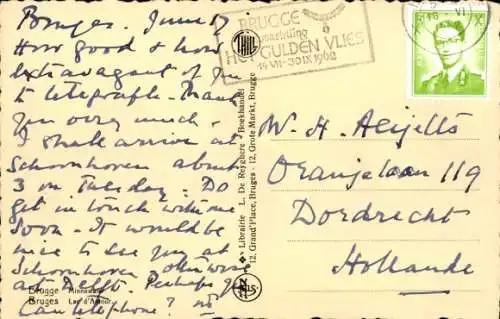 Bruges. June 17
How good & how
extravagant of you
to telegraph. Thank
you very much.
I shall arrive at
Schoonhoven about
3 on Tuesday. Do
get in touch with me
soon. It would be
nice to see you at
Schoonhoven, otherwise
at Delft. Perhaps you
can telephone?
Brugge Minnewater
Bruges Lac d'Amour
THILL
Librairie L. De Reyghere Boekhandel
12, Grand'Place, Bruges - 12, Grote Markt, Brugge
BRUGGE
HET GULDEN VLIES
14 VII-30 IX 1962
W. H.
Oranjelaan 119
Dordrecht
Hollande